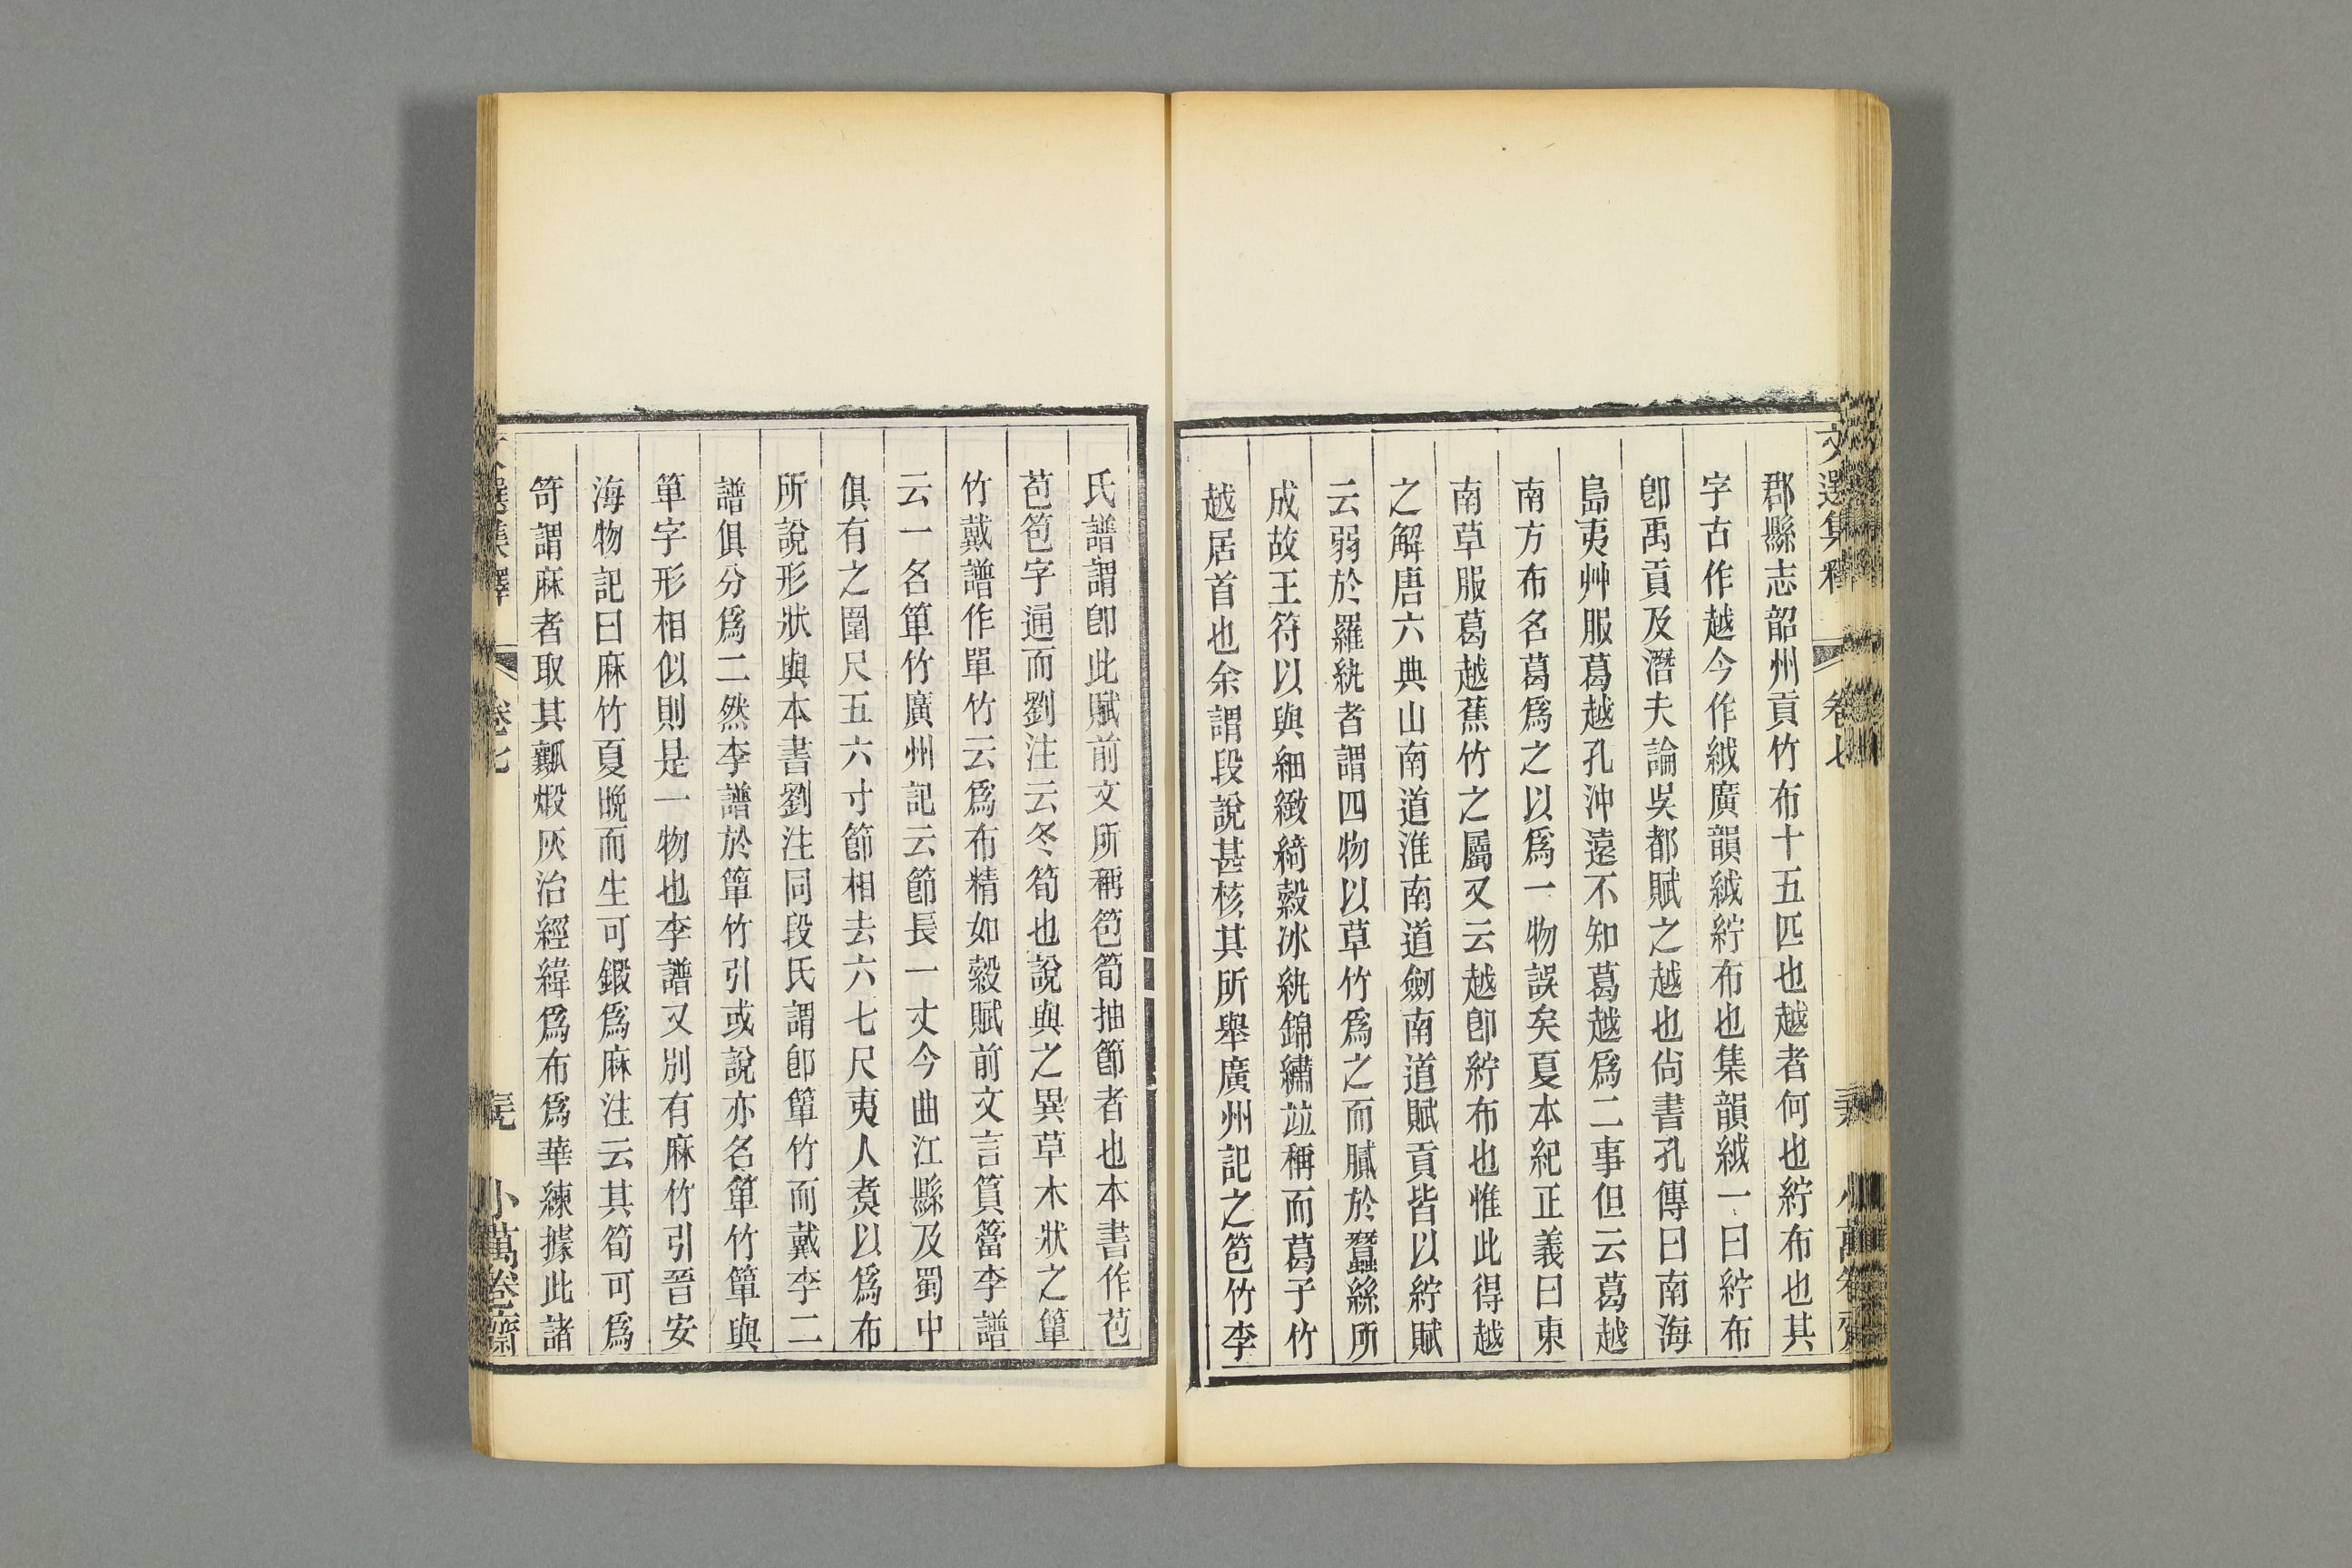 文選集釋
卷七
小萬卷齋
郡縣志韶州貢竹布十五匹也越者何也紵布也其
字古作越今作絨廣韻絨紵布也集韻絨一曰紵布
卽禹貢及潛夫論吳都賦之越也尙書孔傳曰南海
島夷艸服葛越孔沖遠不知葛越爲二事但云葛越
南方布名葛爲之以爲一物誤矣夏本紀正義曰東
南草服葛越蕉竹之屬又云越卽紵布也惟此得越
之解唐六典山南道淮南道劒南道賦貢皆以紵賦
云弱於羅紈者謂四物以草竹爲之而膩於蠶絲所
成故王符以與細緻綺縠冰紈錦繡竝稱而葛子竹
越居首也余謂段說甚核其所舉廣州記之笣竹李
氏譜謂卽此賦前文所稱笣筍抽節者也本書作苞
苞笣字通而劉注云冬筍也說與之異草木狀之簞
竹戴譜作單竹云爲布精如縠賦前文言篔簹李譜
云一名箄竹廣州記云節長一丈今曲江縣及蜀中
俱有之圍尺五六寸節相去六七尺夷人煑以爲布
所說形狀與本書劉注同段氏謂卽簞竹而戴李二
譜俱分爲二然李譜於簞竹引或說亦名箄竹簞與
箄字形相似則是一物也李譜又別有麻竹引晉安
海物記曰麻竹夏晚而生可鍛爲麻注云其筍可爲
笴謂麻者取其瓤煅灰治經緯爲布爲華練據此諸
文選集釋
卷七
小萬卷齋